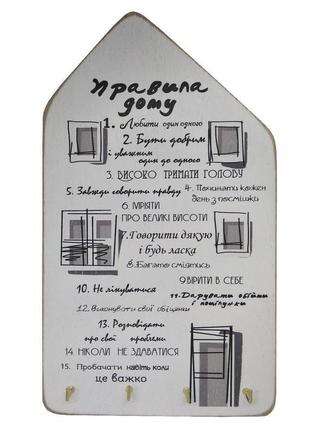 Правила
дому
1. Любити один одного
2. Бути добрим
і уважним
один до одного
3. ВИСОКО ТРИМАТИ ГОЛОВУ
5. Завжди говорити правду 4. Починати кожен
день з посмішки
6. МРІЯТИ
ПРО ВЕЛИКІ ВИСОТИ
7. Говорити дякую
і будь ласка
8. Багато сміятись
9. ВІРИТИ В СЕБЕ
10. Не лінуватися
11. Дарувати обійми
і поцілунки
12. Виконувати свої обіцянки
13. Розповідати
про свої проблеми
14. НІКОЛИ НЕ ЗДАВАТИСЯ
15. Пробачати навіть коли
це важко